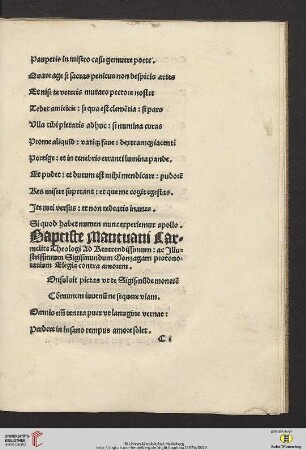 Pauperis in misero casu gemuere poete.
Quare age si sacras penitus non despicis artes
Et nisi te veteris mutato pectore nostre
Tedet amicicie: si qua est clemētia: si pars
Ulla tibi pietatis adhuc: si numina curas
Prome aliquid: vatiqȝ faue: dextramqȝ iacenti
Porrige: et in tenebris erranti lumina pande.
Et pudet: et durum est mihi mendicare: pudorē
Res miser superant: et que me cogit egestas.
Ite mei versus: et non redeatis inanes.
Si quod habet numen nunc experiemur apollo.
Baptiste Mantuani Car-
melite Theologi Ad Reuerendissimum: ac Illu
strissimum Sigismundum Gonzagam protono-
tarium Elegia contra amorem.
Onsuluit pietas vt te Sigismūde monerē
Cōmunem iuuenū ne sequerere viam.
Omnis em̄ tenera puer vt lanugine vernat:
Perdere in insano tempus amore solet.
C i
© Universitätsbibliothek Heidelberg